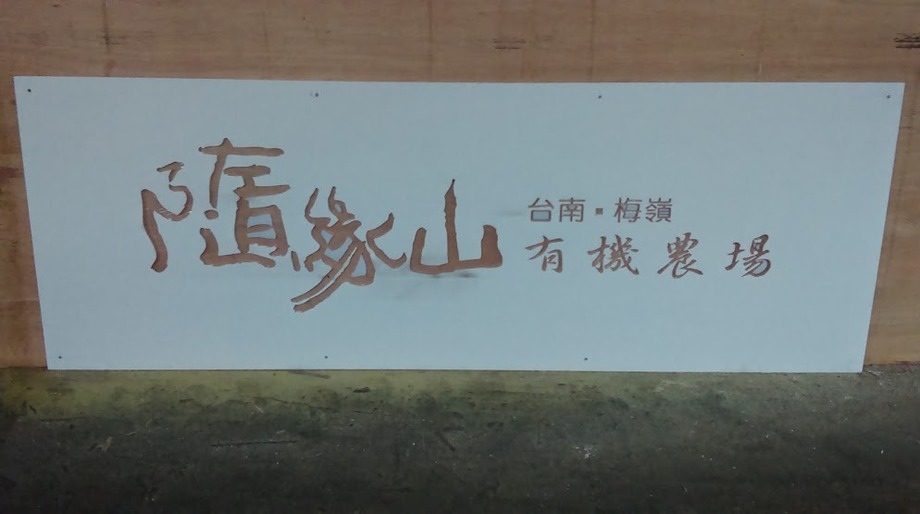 隨緣山
台南▪梅嶺
有機農場